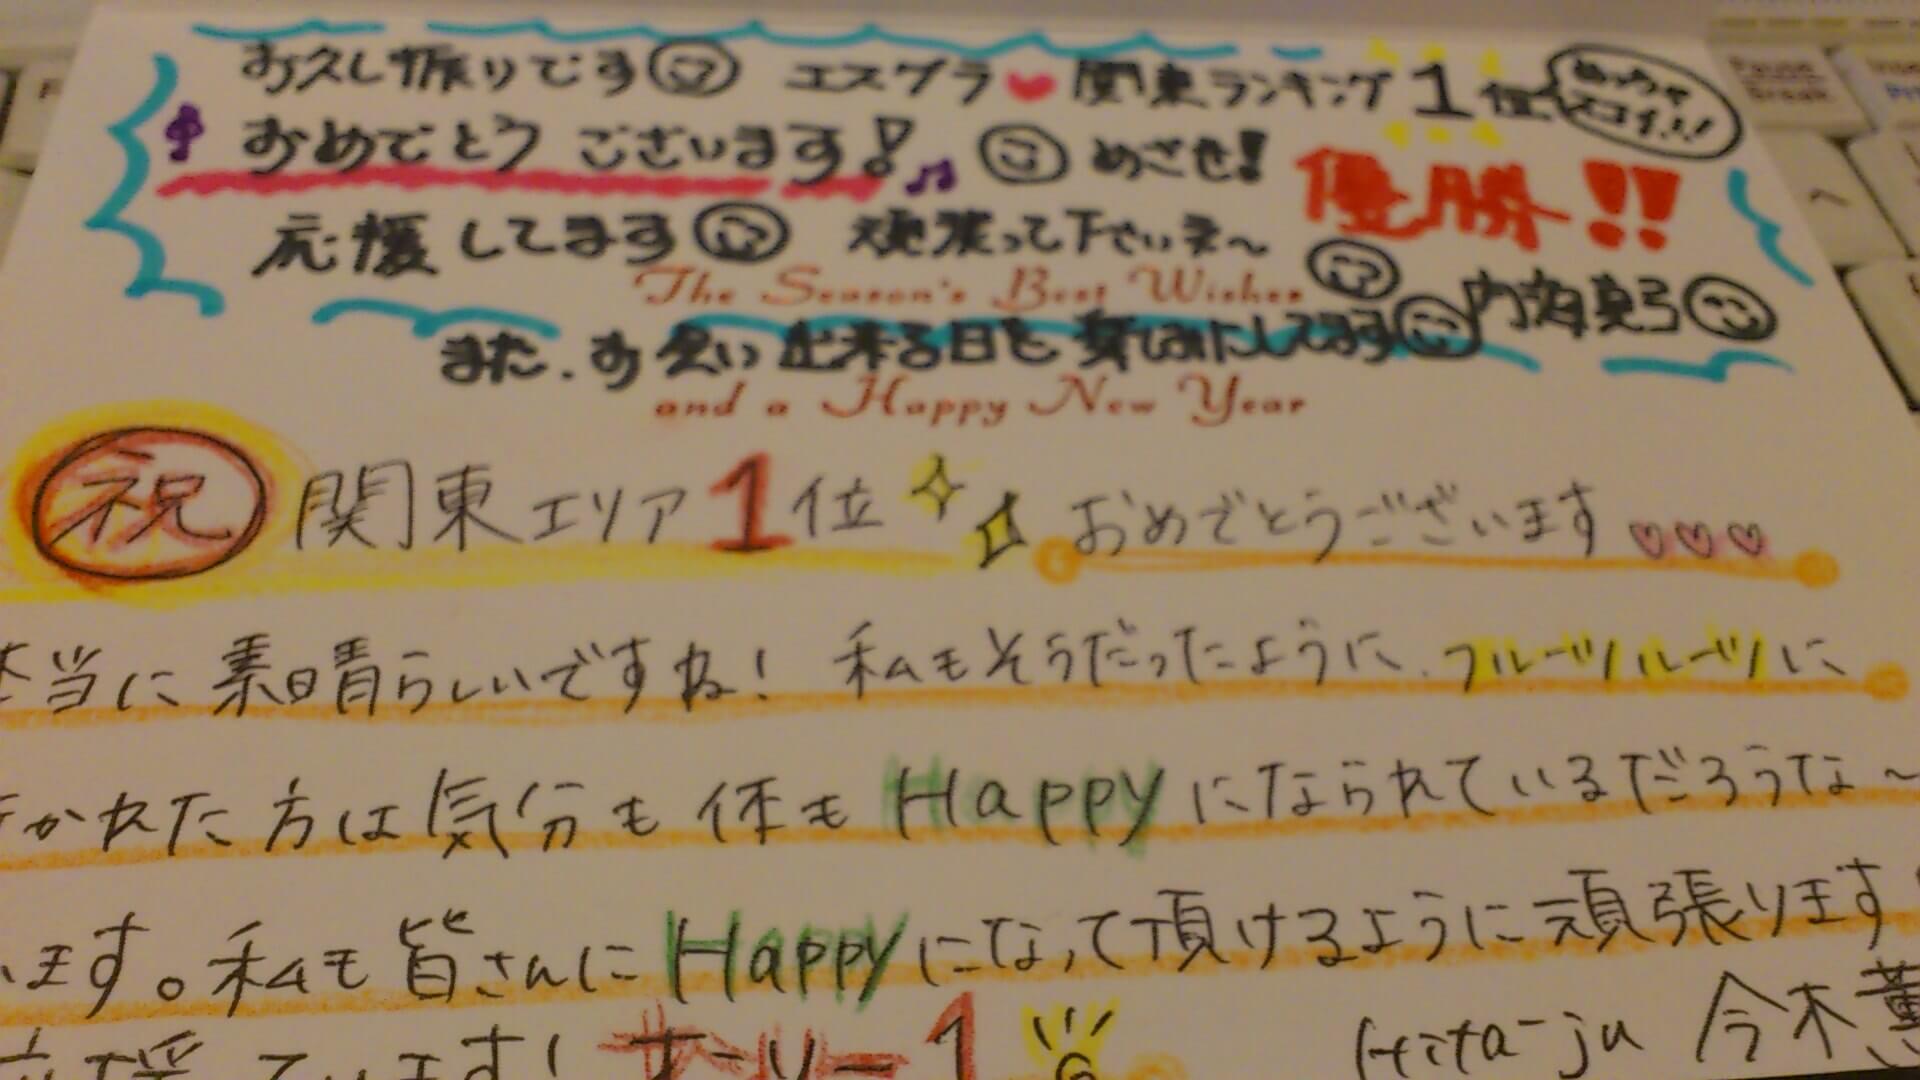 お久し振りです エスグラ 関東ランキング1位 めっちゃスゴイ!!
おめでとうございます! めざせ! 優勝!!
応援してます 頑張って下さいネ〜
The Season's Best Wishes
内海真弓
また、お会い出来る日を楽しみにしてます
and a Happy New Year
祝 関東エリア1位 おめでとうございます
本当に素晴らしいですね! 私もそうだったように、フルーツルーツに
かれた方は気分も体もHappyになられているだろうな〜
います。私も皆さんにHappyになって頂けるように頑張ります
応援しています! オンリー1
Hita-ju 今木薫
Pause
Break